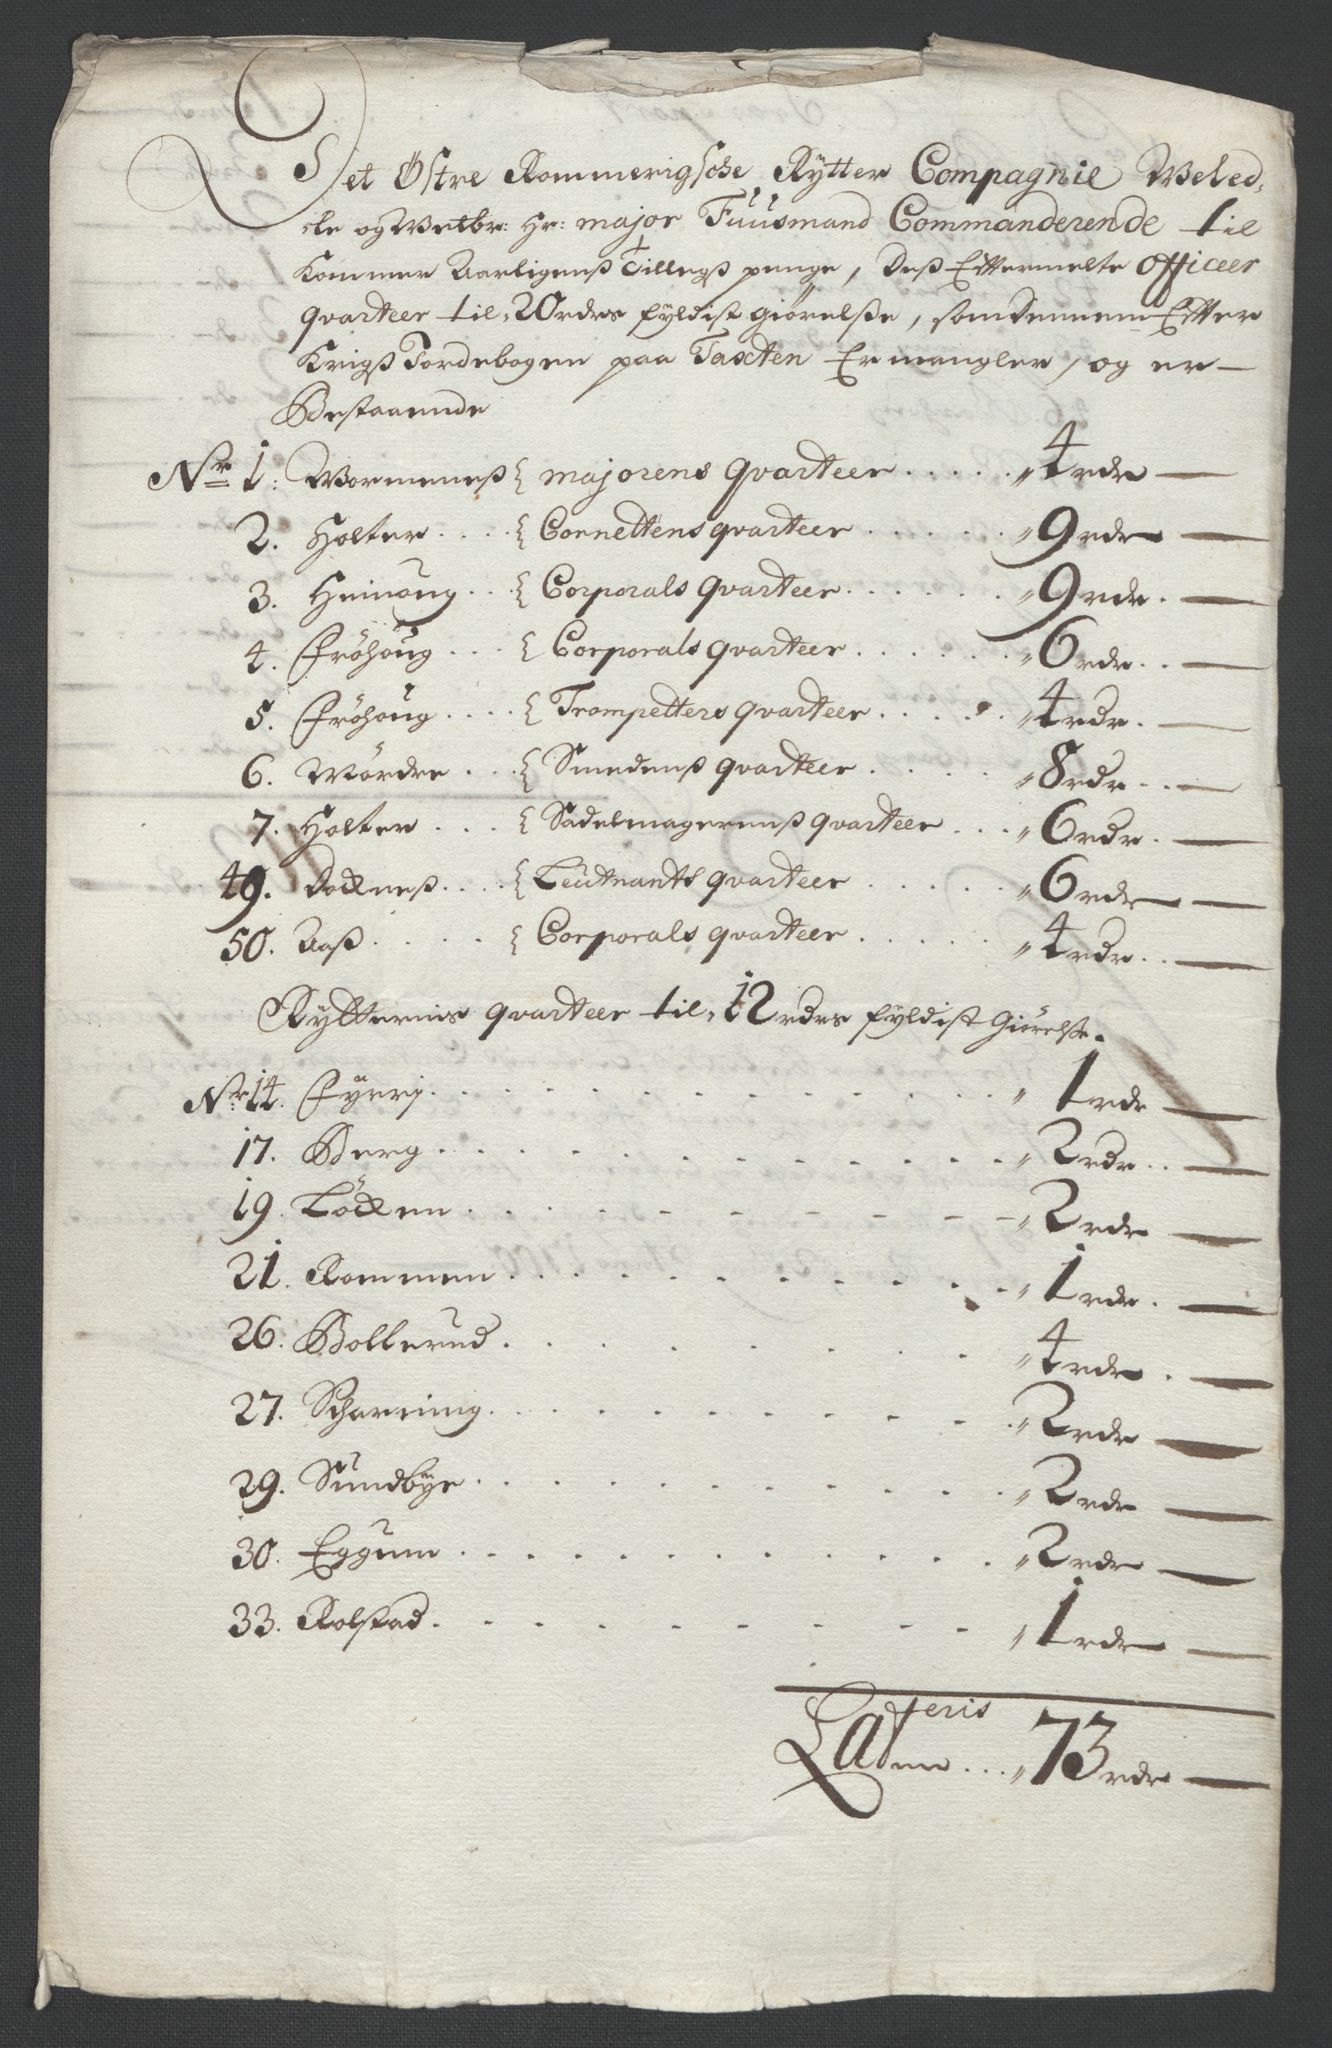 Det Østre Rommerigsche Rytter Compagnie Weled,
ele og Welbr: Hr: major Tuusmand Commanderende til
Kommer Aarligenß Tillegß penge, Deß Eftermelte Officeer
qvarteer til 20 rdrs fyldist giørelße, som dennem Efter
Krigß Jordebogen paa Taxten Er mangler, og er
Bestaaende
Nr 1: Wormeneß { majorens qvarteer . . . . . " 4 rdr —
2. Holter . . . . { Cornettens qvarteer . . . . . . " 9 rdr —
3. Heinoug . . . { Corporals qvarteer . . . . . . " 9 rdr. —
4. Frøhoug . . . . { Corporals qvarteer . . . . . . " 6 rdr. . —
5. Frøhoug . . . . { Trompetters qvarteer . . . . . " 4 rdr. —
6. Mørdre . . . { Smedenß qvarteer . . . . . " 8 rdr. . —
7. Holter . . . . { Sadelmagerenß qvarteer . . . " 6 rdr. —
49. Dockneß . . . . { Leutnants qvarteer . . . . . " 6 rdr —
50. Aaß . . . . . { Corporals qvarteer . . . . . " 4 rdr. . —
Rytternis qvarteer til 12 rdrs fyldist Giørelße.
Nr: 14. Fyerj . . . . . . . . . . " 1 rdr —
17. Berg . . . . . . . . . . . " 2 rdr. . —
19. Løcken . . . . . . . . . . " 2 rdr —
21. Rommen . . . . . . . . . . " 1 rdr. —
26. Bollerud . . . . . . . . " 4 rdr . —
27. Scharning . . . . . . . . . . " 2 rdr —
29. Sundbye . . . . . . . . . . " 2 rdr —
30. Eggum . . . . . . . . . . . " 2 rdr —
33. Rolstad . . . . . . . . . . . " 1 rdr —
Lateris
. . . " 73 rdr —